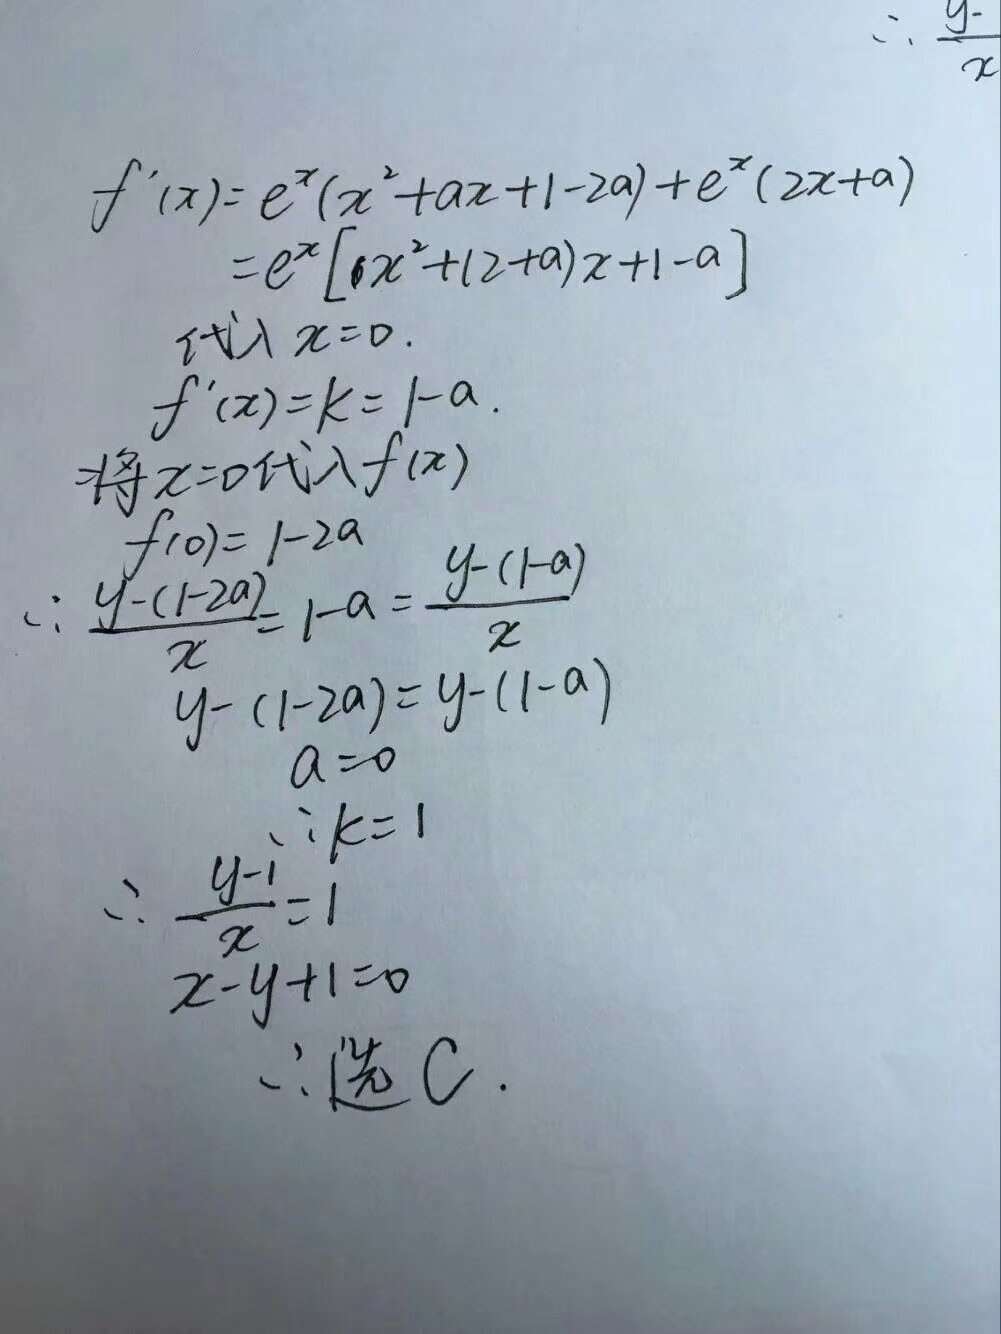 ∴ y-/x
f'(x)=eˣ(x²+ax+1-2a)+eˣ(2x+a)
=eˣ[x²+(2+a)x+1-a]
代入 x=0.
f'(x)=k=1-a.
将x=0代入f(x)
f(0)=1-2a
∴ (y-(1-2a))/x=1-a=(y-(1-a))/x
y-(1-2a)=y-(1-a)
a=0
∴k=1
∴ (y-1)/x=1
x-y+1=0
∴选C.